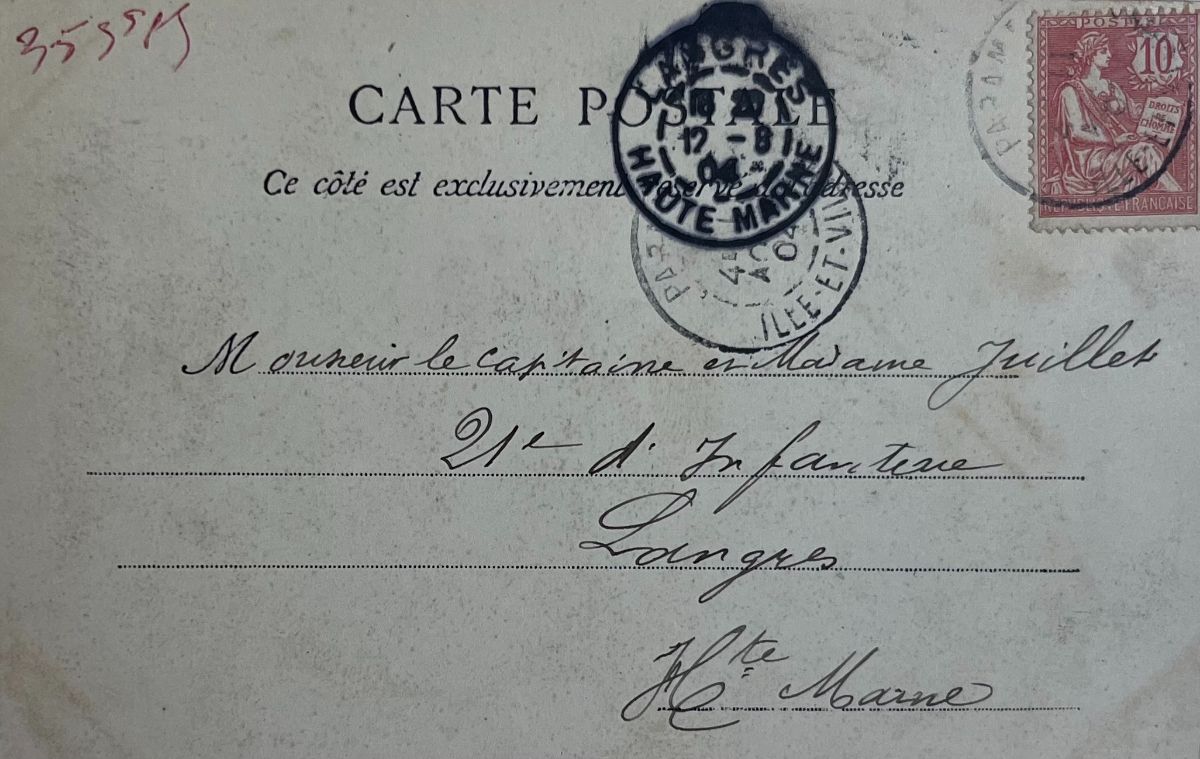 CARTE POSTALE
Ce côté est exclusivement réservé à l'adresse
LANGRES
18 20
12 - 8
04
HAUTE MARNE
PAR
4E
04
ILLE-ET-VIL
PARAME
POSTES
10
DROITS
DE
L'HOMME
REPUBLIQUE FRANCAISE
Monsieur le Capitaine et Madame Juillet
21e d'Infanterie
Langres
Hte Marne